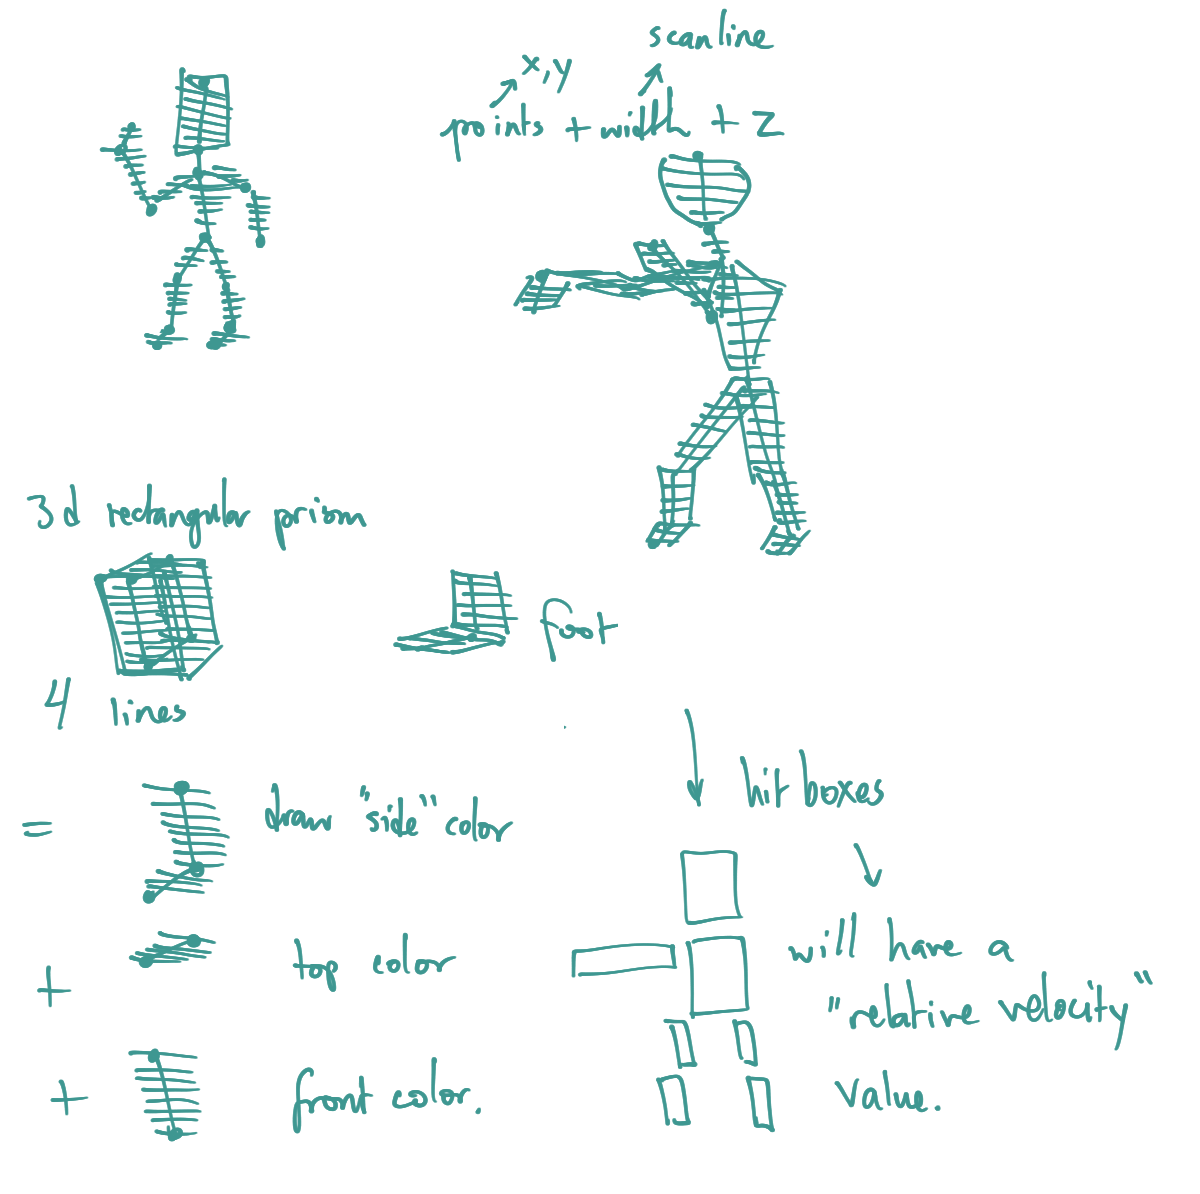 scanline
x,y
points + width + z
3d rectangular prism
foot
4 lines
hit boxes
= draw "side" color
will have a
+ top color
"relative velocity"
+ front color.
value.